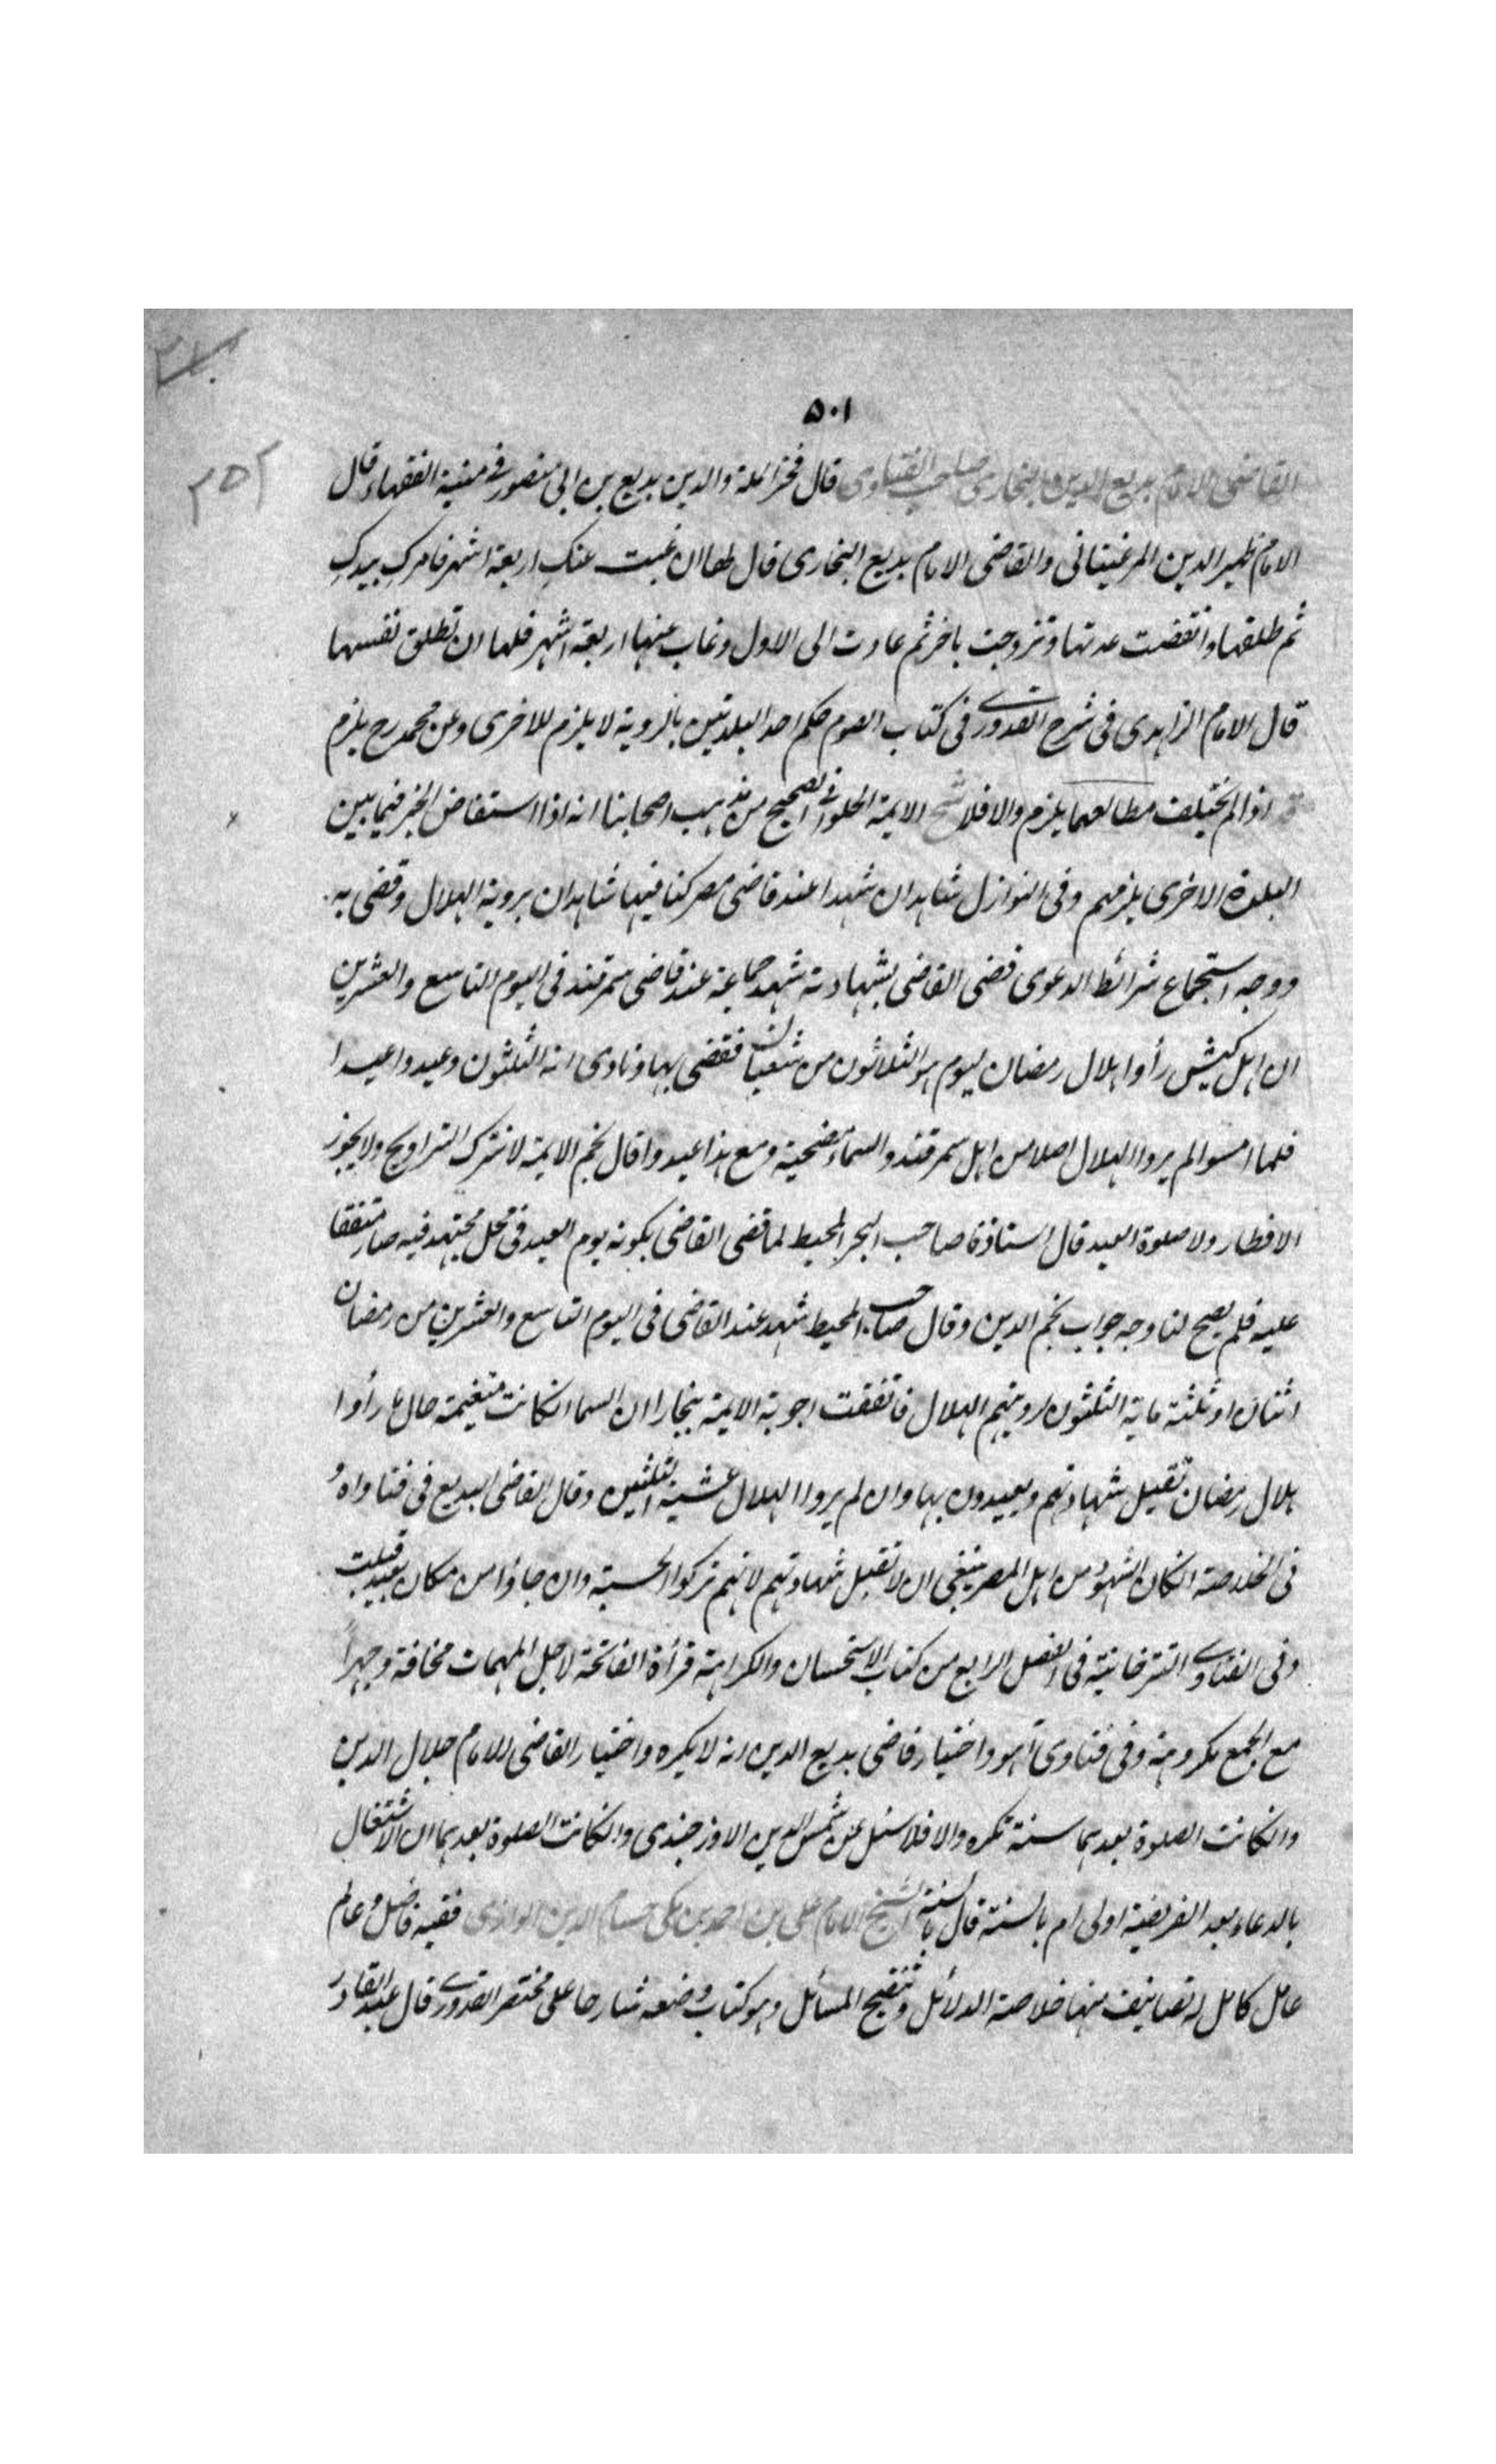 ٥٠١
٢٥٢
القاضى الامام بديع الدين البخارى صاحب الفتاوى قال فخر الملة والدين بديع بن ابى منصور فى منية الفقهاء قال
الامام ظهير الدين المرغينانى والقاضى الامام بديع البخارى قال لها ان غبت عنكِ اربعة اشهر فامركِ بيدكِ
ثم طلقها وانقضت عدتها وتزوجت باخر ثم عادت الى الاول وغاب عنها اربعة اشهر فلها ان تطلق نفسها
قال الامام الزاهدى فى شرح القدورى فى كتاب الصوم حكم احد البلدتين بالروية لا يلزم للاخرى وعن محمد رح يلزم
اذا لم يختلف مطالعهما يلزم والا فلا شمس الايمة الحلوانى الصحيح من مذهب اصحابنا انه اذا استفاض الخبر فيما بين
البلدة الاخرى يلزمهم وفى النوازل شاهدان شهدا عند قاضى مصر كنا فيها شاهدان بروية الهلال وقضى به
ووجد استجماع شرائط الدعوى قضى القاضى بشهادته شهد جماعة عند قاضى سمرقند فى اليوم التاسع والعشرين
ان اهل كيش رأوا هلال رمضان ليوم هو الثلاثون من شعبان فقضى بها ونادى انه الثلثون وعيدوا عيدا
فلما امسوا لم يروا الهلال اصلا من اهل سمرقند والسماء مضحية ومع هذا عيدوا قال نجم الايمة لا نترك التراويح ولا يجوز
الافطار ولا صلوة العيد قال استاذنا صاحب البحر المحيط لما قضى القاضى بكونه يوم العيد فى محل مجتهد فيه صار متفقا
عليه فلم يصح لنا وجه جواب نجم الدين وقال صاحب المحيط شهد عند القاضى فى اليوم التاسع والعشرين من رمضان
اثنان او ثلثة ماية الثلثون لرويتهم الهلال فاتفقت اجوبة الايمة ببخارا ان السما ان كانت متغيمة حال ما رأوا
هلال رمضان تقبل شهادتهم ويعيدون بها وان لم يروا الهلال عشية الثلثين وقال القاضى البديع فى فتاواه
فى الخلاصة ان كان الشهود من اهل المصر ينبغى ان لا تقبل شهادتهم لانهم تركوا الحسبة وان جاؤا من مكان بعيد قبلت
وفى الفتاوى التترخانية فى الفصل الرابع من كتاب الاستحسان والكراهية قرأة الفاتحة لاجل المهمات مخافة وجهراً
مع الجمع مكروهة وفى فتاوى آهو واختيار قاضى بديع الدين انه لا يكره واختيار القاضى الامام جلال الدين
وان كانت الصلوة بعدها سنة تكره والا فلا سئل عن شمس الدين الاوزجندى وان كانت الصلوة بعدها ان الاشتغال
بالدعاء بعد الفريضة اولى ام بالسنة قال بالسنة الشيخ الامام على بن احمد بن مكى حسام الدين الرازى فقيه فاضل وعالم
عامل كامل له تصانيف منها خلاصة الدلائل وتنقيح المسائل وهو كتاب وضعه شارحا على مختصر القدورى قال عبد القادر